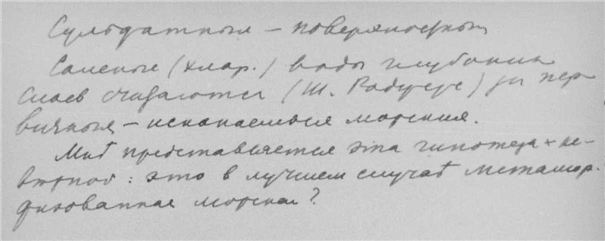 Сульфатныя – поверхностныя
Соленые (хлор.) воды глубоких
слоев считаются (Ш. Радулеу) за пер
вичныя – ископаемыя морския.
Мнѣ представляется эта гипотеза не-
вѣрной: это в лучшем случаѣ метамор
физованная морская?